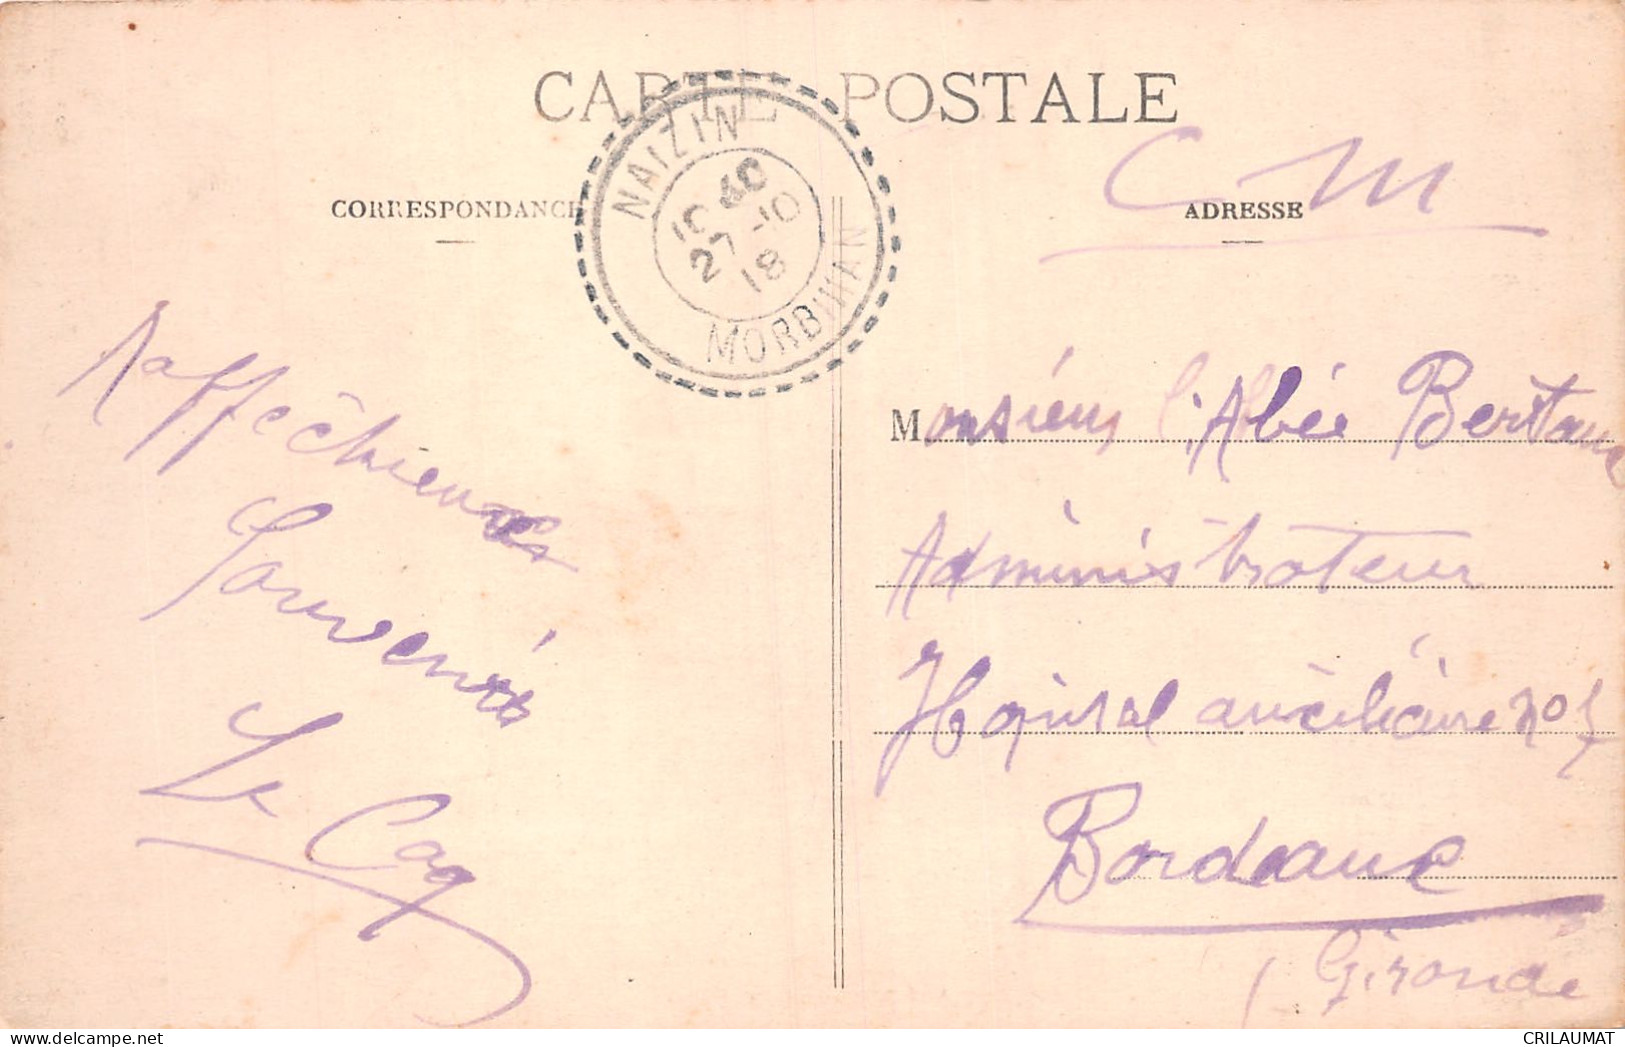 CARTE POSTALE
C M
CORRESPONDANCE
ADRESSE
NAIZIN
10 40
27-10
18
MORBIHAN
Affectueux
Souvenirs
Le Coq
Monsieur l'Abbé
Administrateur
Hopital auxiliaire no
Bordeaux
Gironde
CRILAUMAT